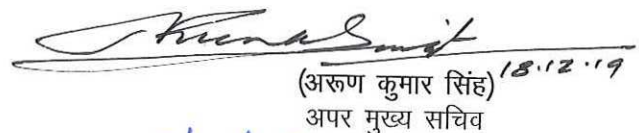 (अरूण कुमार सिंह) 18.12.19
अपर मुख्य सचिव